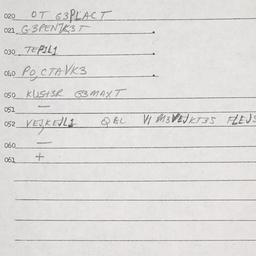 020 OT G3PLACT
021 G3PENJK3T
030 TEPIL1
040 PO,CTAVK3
050 KUSH3R G3MAYT
051 —
052 VEJKEJL1 QEL VI M3VEJKT3S FLEJS
060 —
061 +